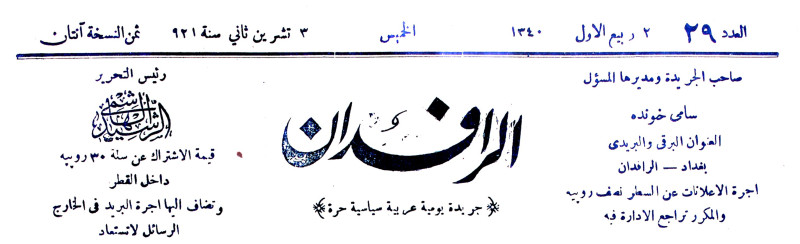 العدد ٢٩ ٢ ربيع الاول ١٣٤٠ الخميس ٣ تشرين ثاني سنة ٩٢١ ثمن النسخة آنتان
صاحب الجريدة ومديرها المسؤل
سامى خونده
العنوان البرقى والبريدى
بغداد — الرافدان
اجرة الاعلانات عن السطر نصف روپيه
والمكرر تراجع الادارة فيه
الرافدان
جريدة يومية عربية سياسية حرة
رئيس التحرير
رشيد الهاشمي
قيمة الاشتراك عن سنة ٣٠ روپيه
داخل القطر
وتضاف اليها اجرة البريد فى الخارج
الرسائل لاتستعاد